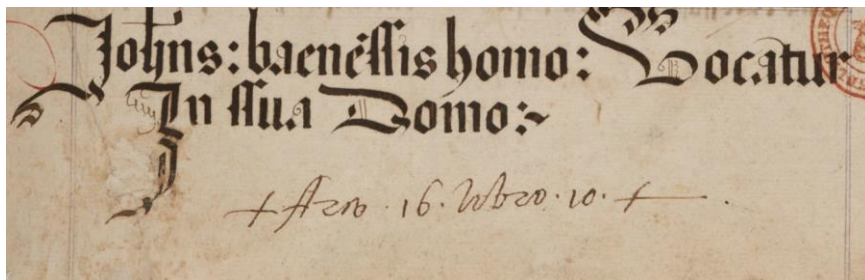 Johns: baenēssis homo: Vocatur
In ssua Domo:~
+ 16. 10. +